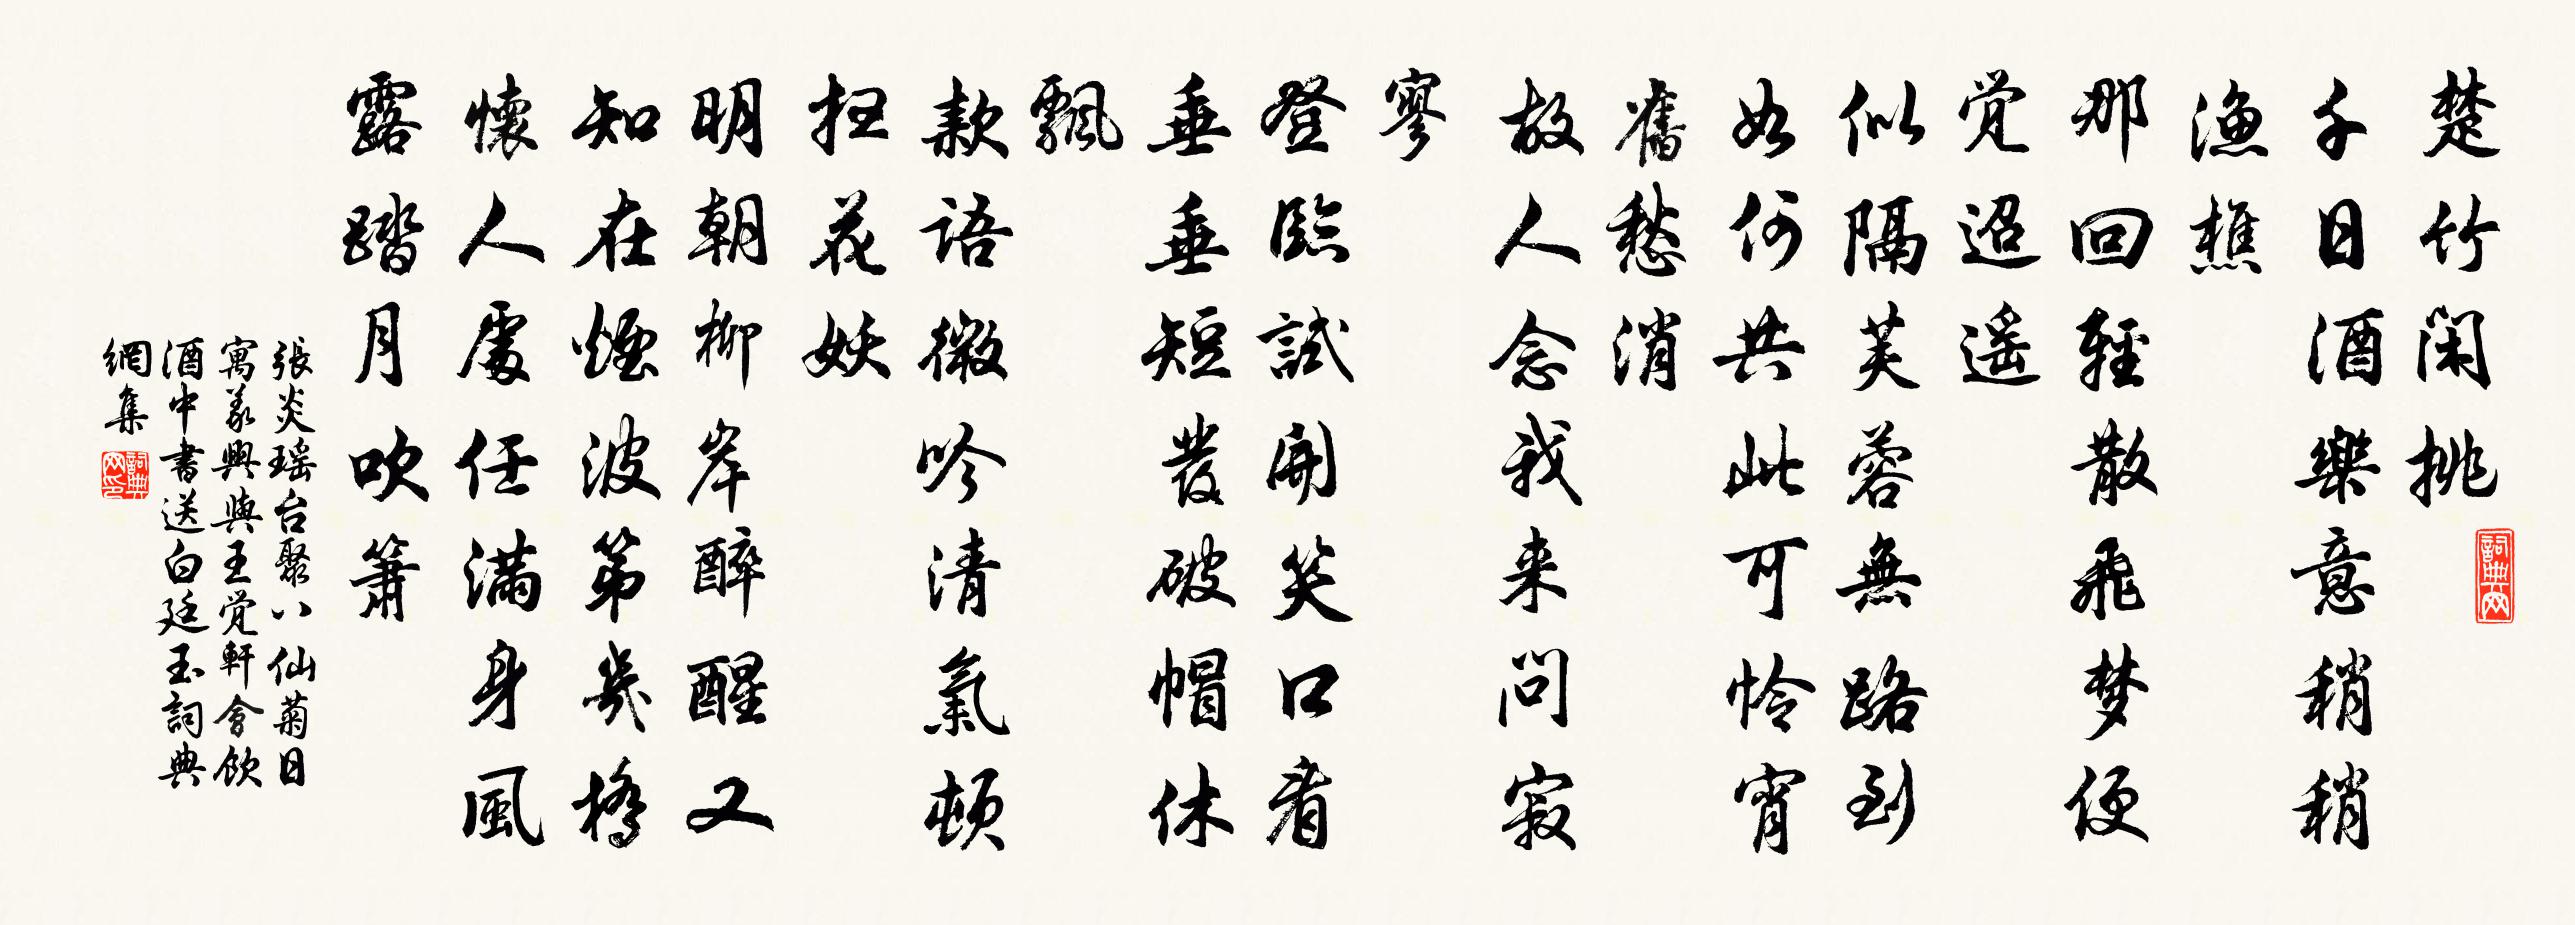 楚竹闲挑
千日酒樂意稍稍
漁樵
那回輕散飛梦便
觉迢遥
似隔芙蓉無路到
如何共此可怜宵
舊愁消
故人念我来问寂
寥
登臨試開笑口看
垂垂短髮破帽休
飄
款語微吟清氣頓
扫花妖
明朝柳岸醉醒又
知在煙波第幾橋
懷人處任滿身風
露踏月吹簫
張炎瑶台聚八仙菊日
寓義興與王觉軒會飲
酒中書送白廷玉詞典
網集
詞典网
詞典网印